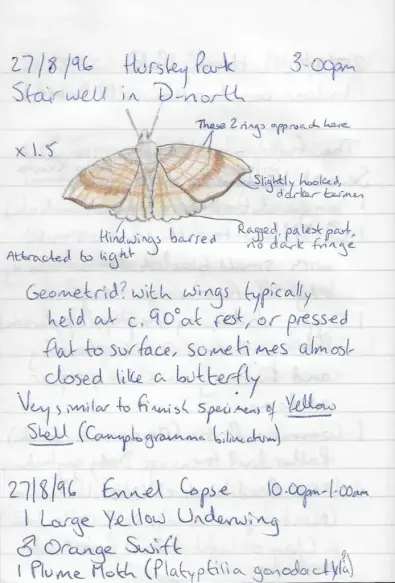 27/8/96 Hursley Park 3.00pm
Stairwell in D-north
These 2 rings approach here
x1.5
Slightly hooked,
darker termen
Hindwings barred
Ragged, palest part,
no dark fringe
Attracted to light
Geometrid? with wings typically
held at c. 90° at rest, or pressed
flat to surface, sometimes almost
closed like a butterfly
Very similar to finnish specimens of Yellow
Shell (Camptogramma bilineatum)
27/8/96 Ennel Copse 10.00pm-1.00am
1 Large Yellow Underwing
♂ Orange Swift
1 Plume Moth (Platyptilia gonodactyla?)